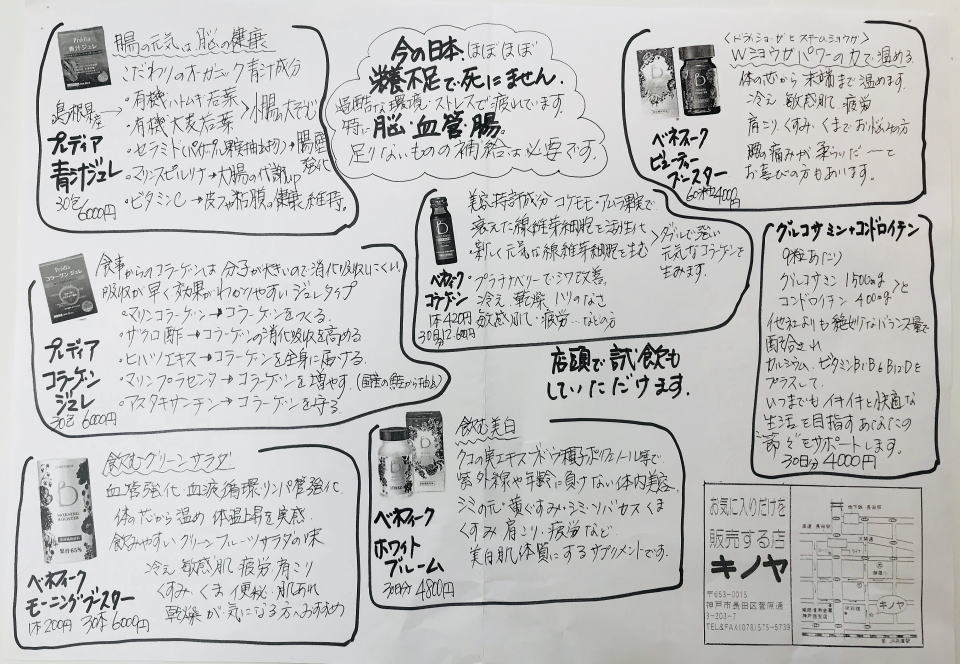 腸の元気は、脳の健康
こだわりのオーガニック青汁成分
島根県産→
・有機ハトムギ若葉
・有機大麦若葉
>小腸の大そうじ
・セラミド(パイナップル果実抽出物)→腸壁強化
・マリンスピルリナ→大腸の代謝up
・ビタミンC→皮フや粘膜の健康維持。
プレディア
青汁ジュレ
30包6000円
今の日本、ほぼほぼ
栄養不足で死にません。
過酷な環境・ストレスで疲れています。
特に脳・血管・腸。
足りないものの補給は必要です。
Wショウガパワーの力で温める。
体の芯から末端まで温めます。
冷え 敏感肌 疲労
肩こり、くすみ、くまでお悩みの方
腰の痛みが柔らいだーと
お喜びの方もあります。
ベネフィーク
ビューティー
ブースター
60粒4000円
美容特許成分 コケモモ・アムラ果実で
・衰えた線維芽細胞を活性化
・新しく元気な線維芽細胞を生む
>ダブルで強い
元気なコラーゲンを
生みます。
・プラチナベリーでシワ改善。
冷え 乾燥 ハリのなさ
敏感肌・疲労…などの方
ベネフィーク
コラーゲン
1本420円
30日12.600円
グルコサミン+コンドロイチン
9粒あたり
グルコサミン 1500mg
コンドロイチン 400mg
>と
他社よりも絶妙なバランス量で
配合され
カルシウム、ビタミンB1 B6 B12 Dを
プラスして、
いつまでもイキイキと快適な
生活を目指すあなたの
"節々"をサポートします。
30日分 4000円
Prédia
コラーゲンジュレ
食事からのコラーゲンは分子が大きいので消化吸収しにくい。
吸収が早く効果がわかりやすいジュレタイプ
・マリンコラーゲン→コラーゲンをつくる。
・ザクロ酢→コラーゲンの消化吸収を高める
・ヒハツエキス→コラーゲンを全身に届ける。
・マリンプラセンタ→コラーゲンを増やす。(国産の鮭から抽出)
・アスタキサンチン→コラーゲンを守る。
プレディア
コラーゲン
ジュレ
30包6000円
店頭で試飲も
していただけます。
飲むグリーンサラダ
血管強化・血液循環・リンパ管強化
体の芯から温め 体温上昇を実感
飲みやすいグリーンフルーツサラダの味
冷え 敏感肌 疲労 肩こり
くすみ、くま 便秘・肌あれ
乾燥が気になる方へおすすめ
MORNING
BOOSTER
果汁65%
ベネフィーク
モーニングブースター
1本200円 30本6000円
飲む美白
クコの実エキス・ブドウ種子ポリフェノール等で
紫外線や年齢に負けない体内美容。
シミの元・黄ぐすみ・シミ・ソバカス くま
くすみ 肩こり・疲労など
美白肌体質にするサプリメントです。
ベネフィーク
ホワイト
ブルーム
30日分 4800円
お気に入りだけを
販売する店
キノヤ
〒653-0015
神戸市長田区菅原通
3-203-7
TEL&FAX(078)575-5739
キノヤ